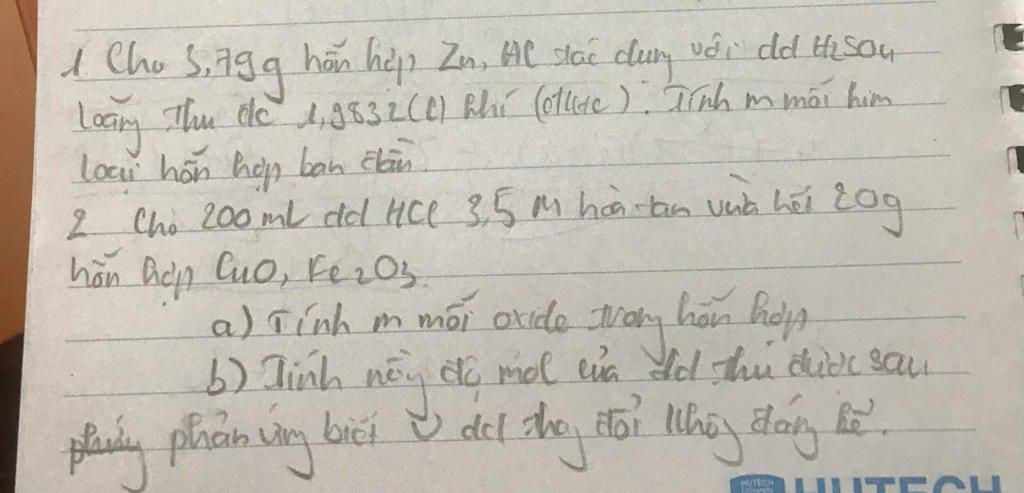 1. Cho 5,79g hỗn hợp Zn, Al tác dụng với dd H2SO4
loãng thu đc 1,9832(l) khí (đktc). Tính m mỗi kim
loại hỗn hợp ban đầu.
2 Cho 200 mL dd HCl 3,5 M hòa tan vừa hết 20g
hỗn hợp CuO, Fe2O3.
a) Tính m mỗi oxide trong hỗn hợp
b) Tính nồng độ mol của dd thu được sau
phản ứng biết V dd thay đổi không đáng kể.
HUTECH
HUTECH